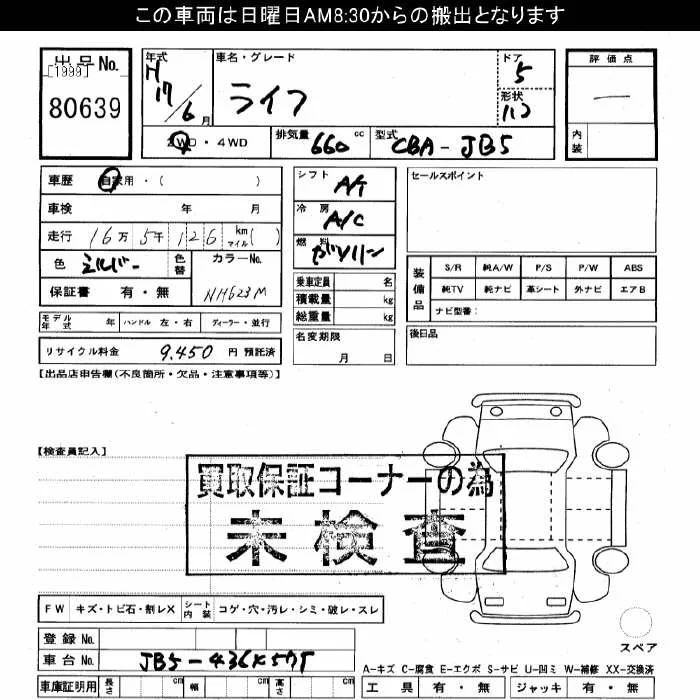 この車両は日曜日AM8:30からの搬出となります
出品No.
[1999]
80639
年式 H17/6月
車名・グレード
ライフ
ドア 5
形状 ハコ
評価点
―
内装
2WD・4WD
排気量 660 cc
型式 CBA-JB5
車歴 自家用・( )
車検 年 月
走行 16万5千126 km マイル( )
色 シルバー
色替
カラーNo.
NH623M
保証書 有・無
モデル年式 年 ハンドル 左・右 ディーラー・並行
リサイクル料金 9,450 円 預託済
シフト A/T
冷房 A/C
燃料 ガソリン
乗車定員 名
積載量 kg
総重量 kg
名変期限
月 日
セールスポイント
装備品
S/R 純A/W P/S P/W ABS
純TV 純ナビ 革シート 外ナビ エアB
ナビ型番:
後日品
【出品店申告欄(不良箇所・欠品・注意事項等)】
【検査員記入】
買取保証コーナーの為
未検査
FW キズ・トビ石・割レX シート内装 コゲ・穴・汚レ・シミ・破レ・スレ
登録No.
車台No.
車庫証明用 長さ cm 幅 cm 高さ cm
スペア
A-キズ C-腐食 E-エクボ S-サビ U-凹ミ W-補修 XX-交換済
工具 有・無 ジャッキ 有・無